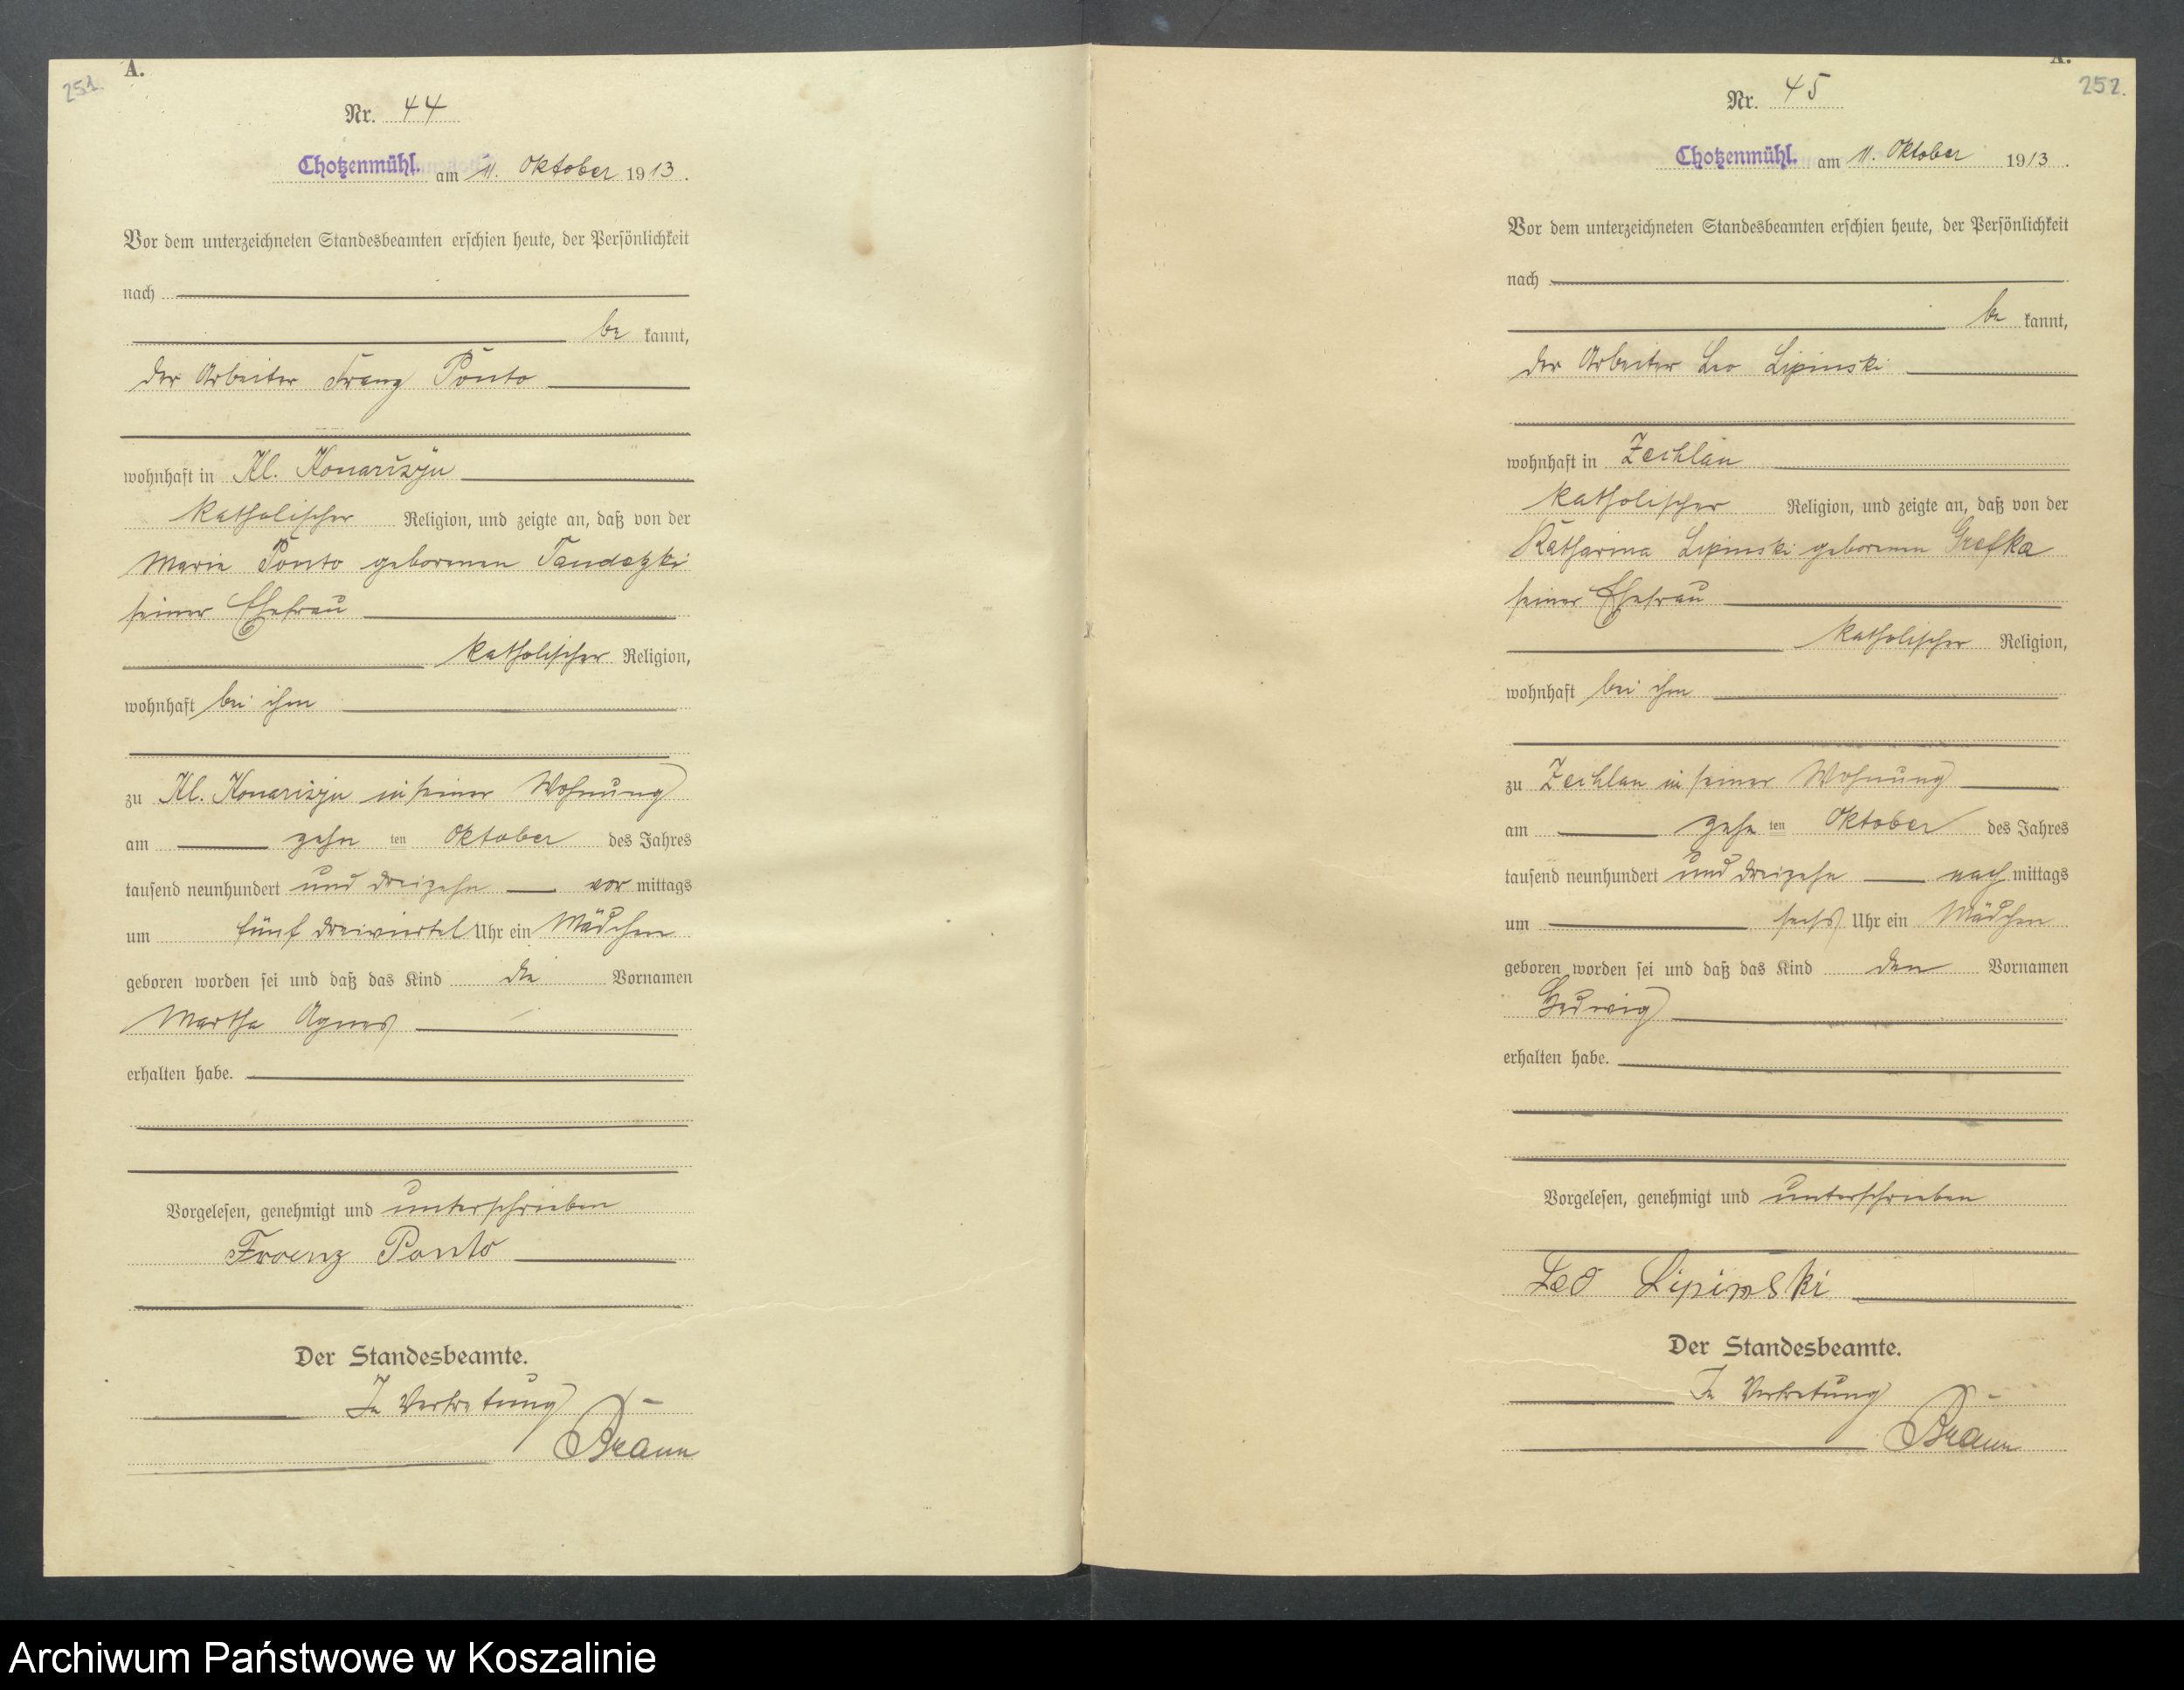 251.
A.
Nr. 44
Chotzenmühl. am 11. Oktober 1913.
Vor dem unterzeichneten Standesbeamten erschien heute, der Persönlichkeit
nach
be kannt,
der Arbeiter Franz Ponto
wohnhaft in Kl. Konarczyn
katholischer Religion, und zeigte an, daß von der
Marie Ponto geborenen
seiner Ehefrau
katholischer Religion,
wohnhaft bei ihm
zu Kl. in seiner Wohnung
am zehn ten Oktober des Jahres
tausend neunhundert und dreizehn vor mittags
um fünf dreiviertel Uhr ein Mädchen
geboren worden sei und daß das Kind die Vornamen
Martha Agnes
erhalten habe.
Vorgelesen, genehmigt und unterschrieben
Franz Ponto
Der Standesbeamte.
In Vertretung
Braun
A.
252.
Nr. 45
Chotzenmühl. am 11. Oktober 1913.
Vor dem unterzeichneten Standesbeamten erschien heute, der Persönlichkeit
nach
be kannt,
der Arbeiter Leo Lipinski
wohnhaft in Zechlau
katholischer Religion, und zeigte an, daß von der
Katharina Lipinski geborenen Grefka
seiner Ehefrau
katholischer Religion,
wohnhaft bei ihm
zu Zechlau in seiner Wohnung
am zehn ten Oktober des Jahres
tausend neunhundert und dreizehn nach mittags
um sechs Uhr ein Mädchen
geboren worden sei und daß das Kind den Vornamen
Hedwig
erhalten habe.
Vorgelesen, genehmigt und unterschrieben
Leo Lipinski
Der Standesbeamte.
In Vertretung
Braun
Archiwum Państwowe w Koszalinie